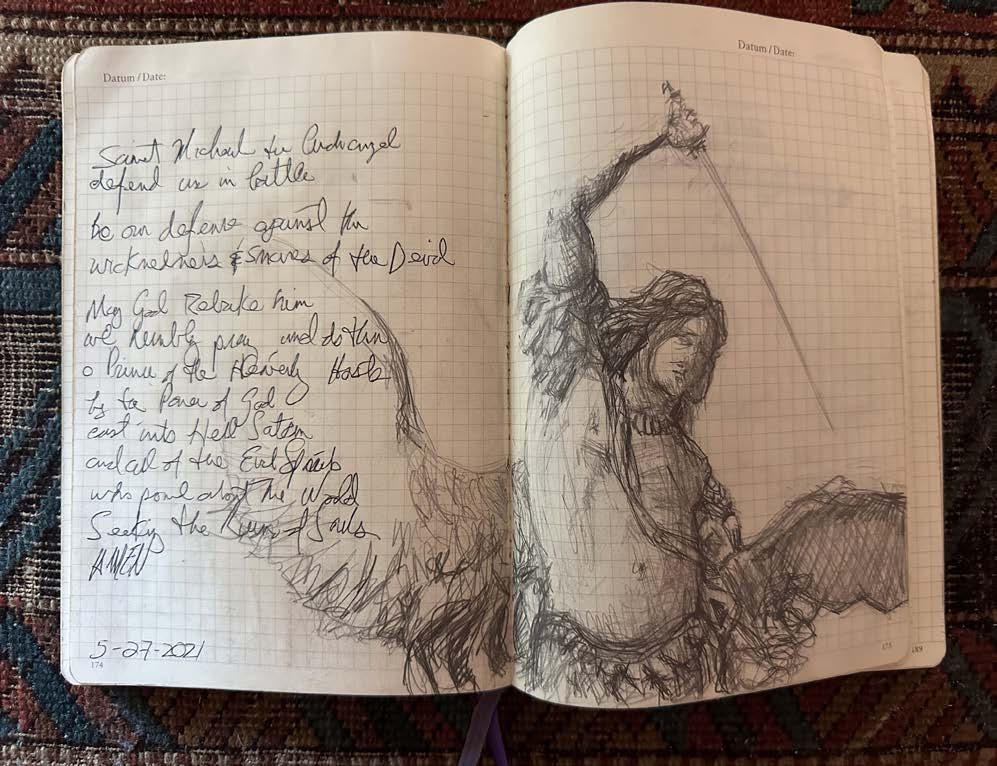 Datum / Date:
Saint Michael the Archangel
defend us in battle
be our defense against the
wickedness & snares of the Devil
May God Rebuke him
we humbly pray and do thou
o Prince of the Heavenly Hosts
by the Power of God
cast into Hell Satan
and all of the Evil Spirits
who prowl about the World
Seeking the Ruin of Souls
AMEN
5-27-2021
174
Datum / Date:
175